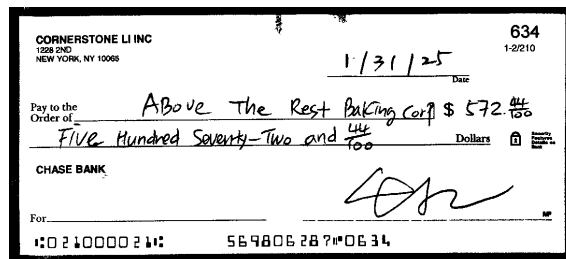 CORNERSTONE LI INC
1228 2ND
NEW YORK, NY 10065
634
1-2/210
1/31/25
Date
Pay to the Order of Above The Rest Baking Corp $ 572.44/100
Five Hundred Seventy-Two and 44/100 Dollars
Security Features Details on Back
CHASE BANK
For
MP
⑆021000021⑆ 569806287⑈0634